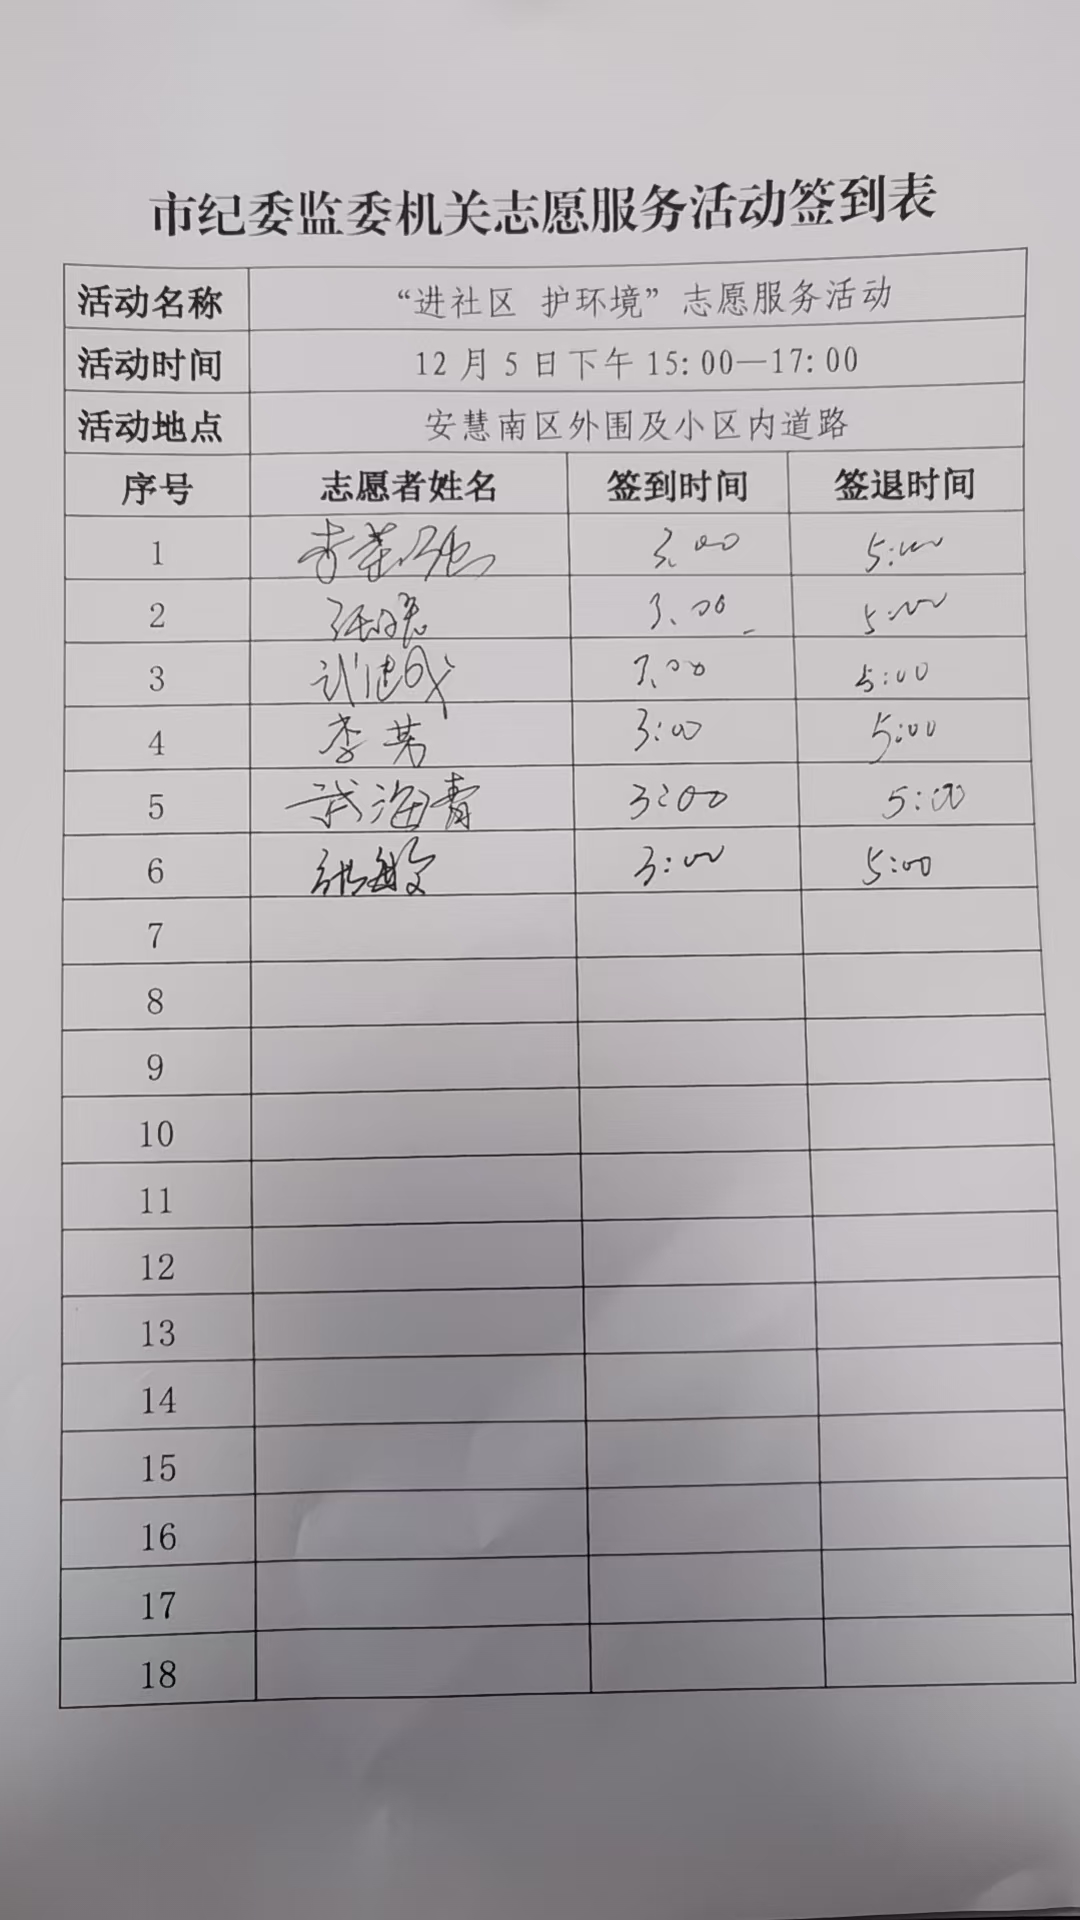 市纪委监委机关志愿服务活动签到表
活动名称 “进社区 护环境”志愿服务活动
活动时间 12月5日下午15:00—17:00
活动地点 安慧南区外围及小区内道路
序号 志愿者姓名 签到时间 签退时间
1 3.00 5:00
2 3.00 5:00
3 3.00 5:00
4 李芳 3:00 5:00
5 武海青 3:00 5:00
6 张敏 3:00 5:00
7
8
9
10
11
12
13
14
15
16
17
18